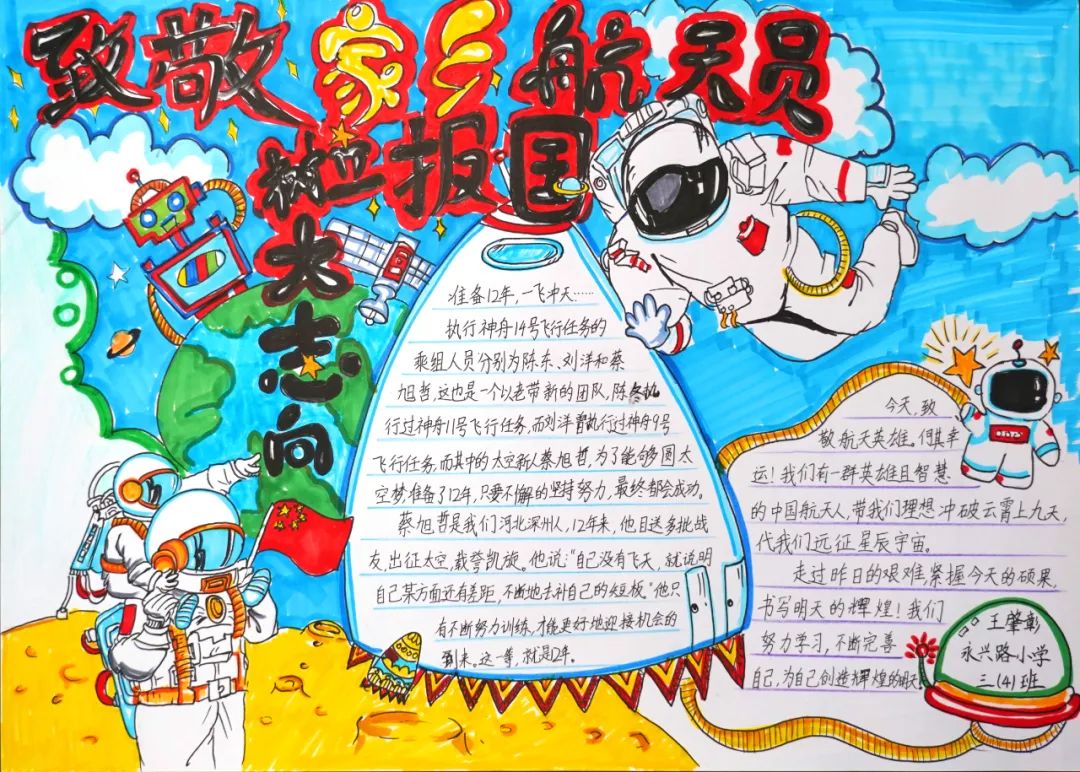 致敬家乡航天员
树立报国
大志向
准备12年，一飞冲天……
执行神舟14号飞行任务的
乘组人员分别为陈东、刘洋和蔡
旭哲，这也是一个以老带新的团队，陈冬执
行过神舟11号飞行任务，而刘洋曾执行过神舟9号
飞行任务，而其中的太空新人蔡旭哲，为了能够圆太
空梦准备了12年，只要不懈的坚持努力，最终都会成功。
蔡旭哲是我们河北深州人，12年来，他目送多批战
友，出征太空，载誉凯旋。他说：“自己没有飞天，就说明
自己某方面还有差距，不断地去补自己的短板”他只
有不断努力训练，才能更好地迎接机会的
到来。这一等，就是12年。
今天，致
敬航天英雄。何其幸
运！我们有一群英雄且智慧
的中国航天人，带我们理想冲破云霄上九天，
代我们远征星辰宇宙。
走过昨日的艰难，紧握今天的硕果，
书写明天的辉煌！我们
努力学习，不断完善
自己，为自己创造辉煌的明天
王肇彰
永兴路小学
三（4）班